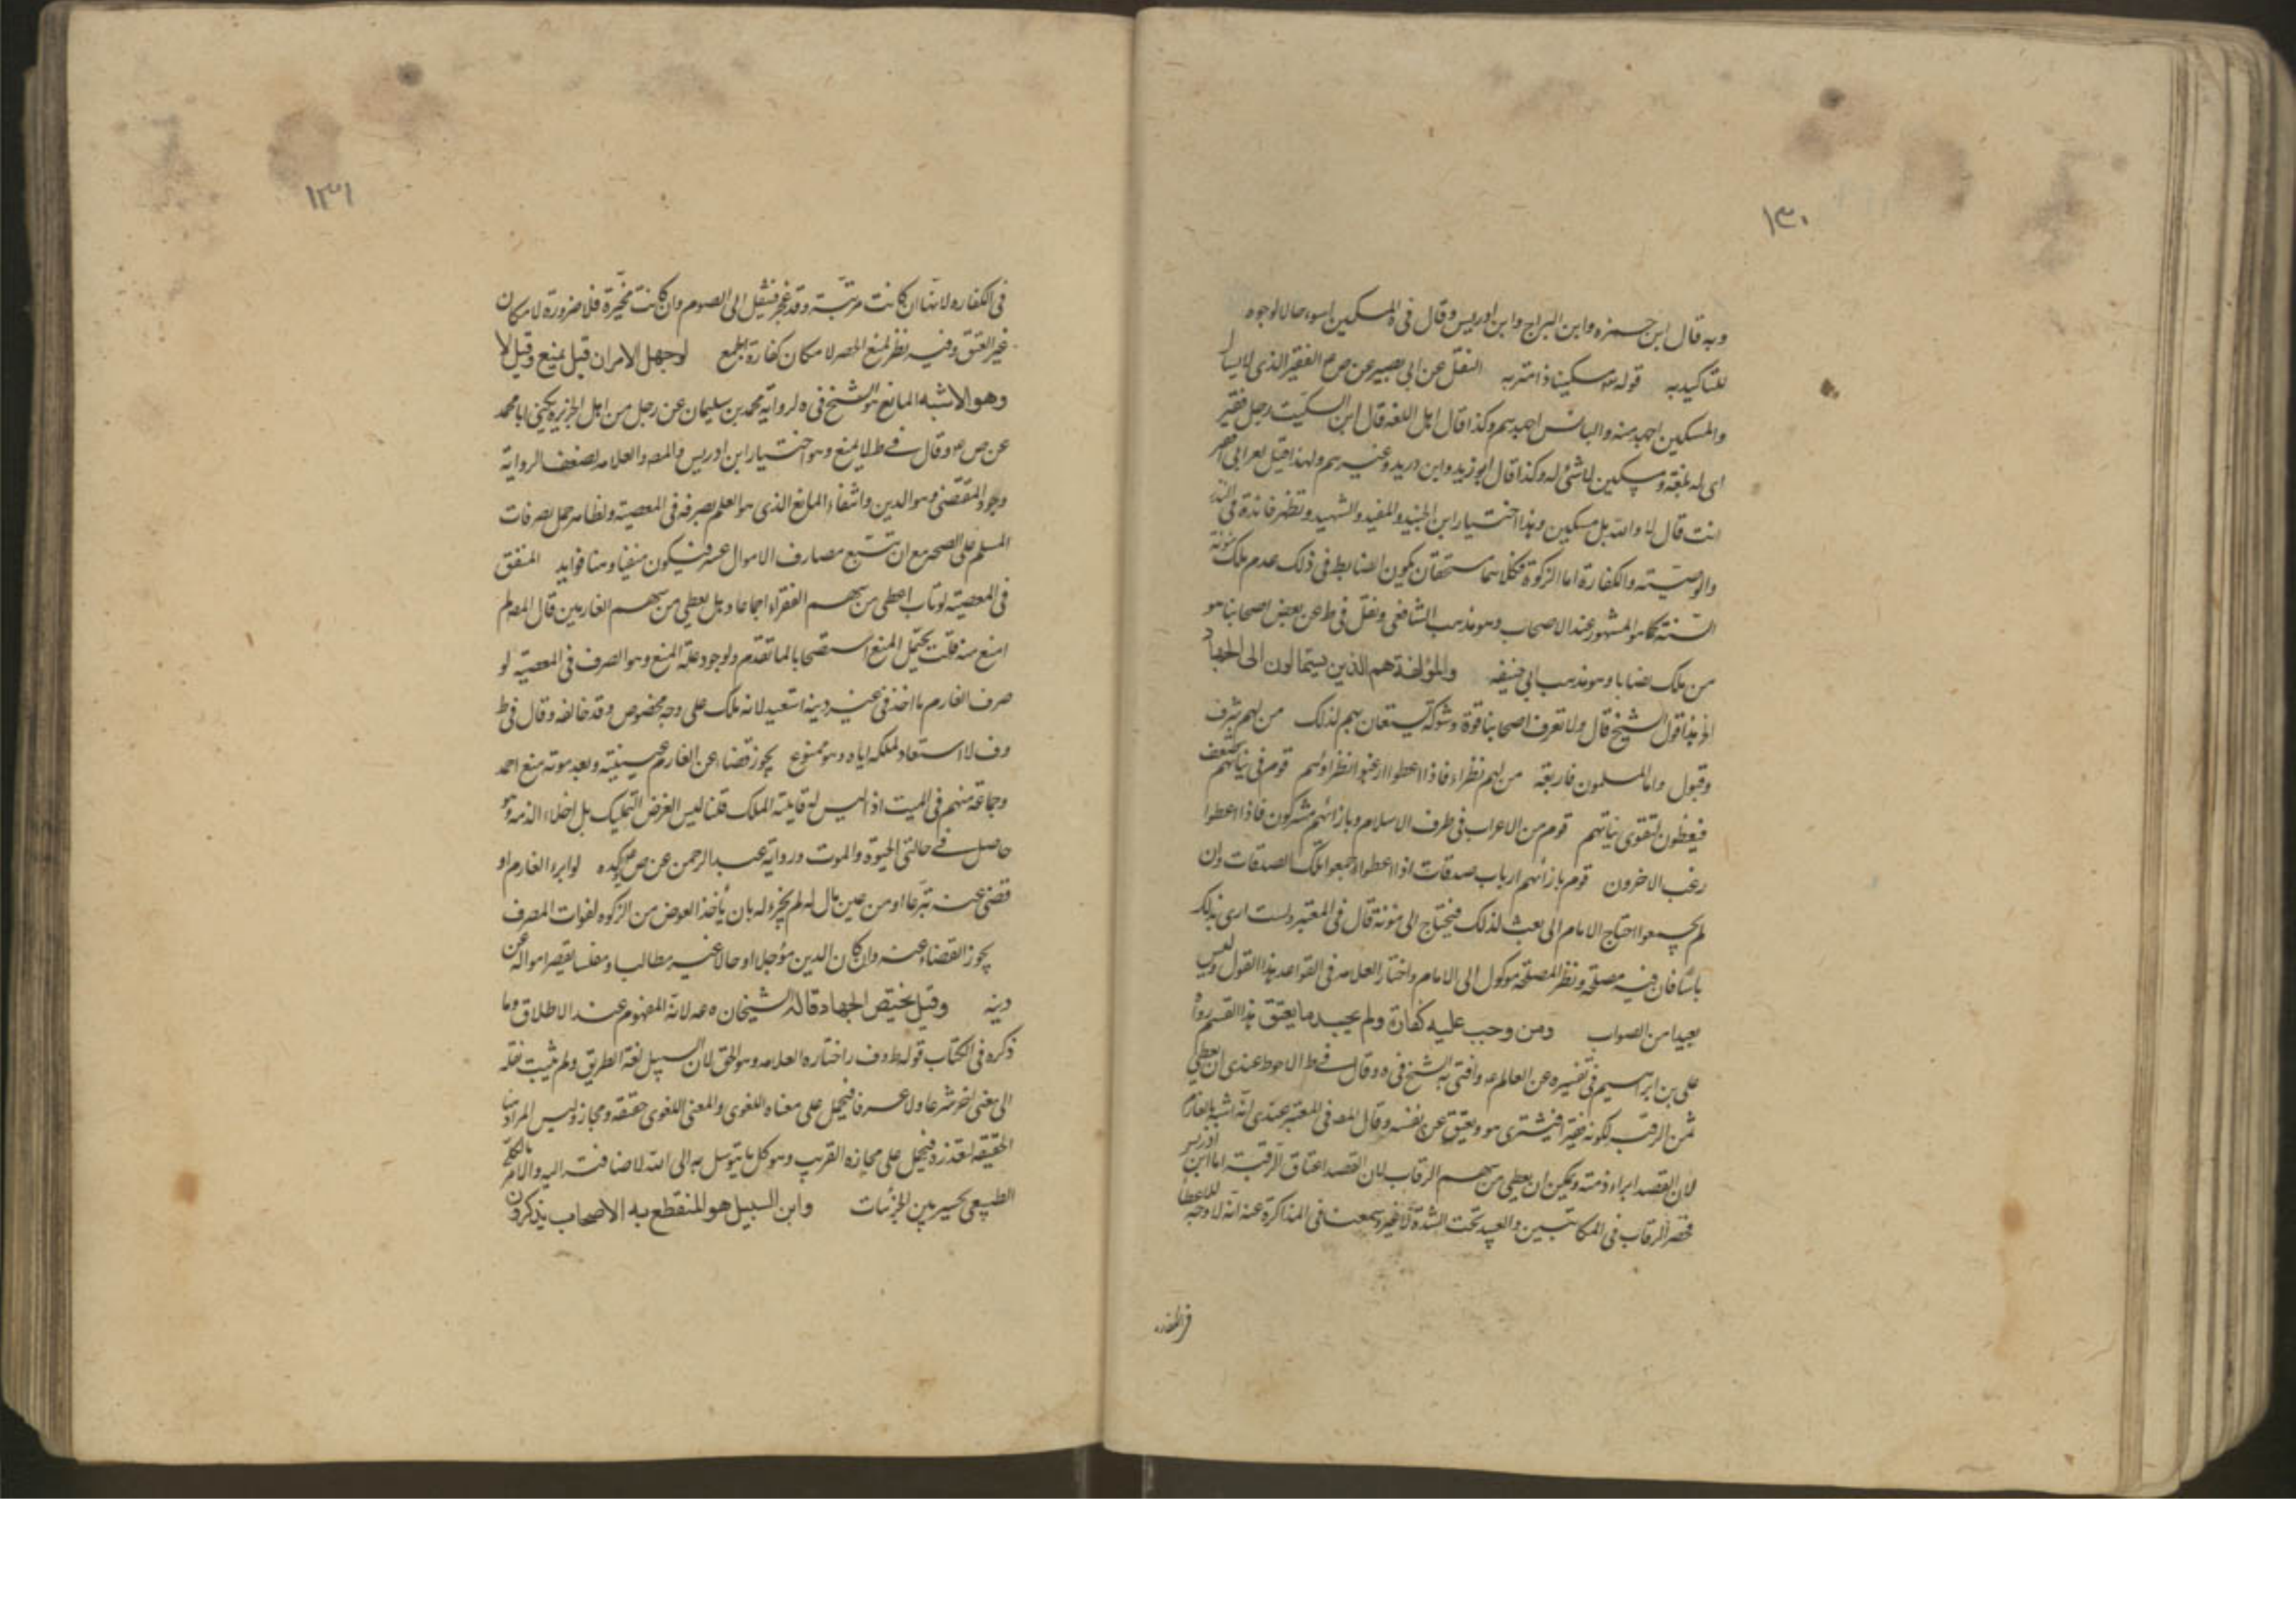 ١٣٠
وبه قال ابن حمزه وابن البراج وابن ادريس وقال في ة المسكين اسوء حالا لوجوه
للتاكيد به قوله تعه مسكينا ذا متربه النقل عن ابي بصير عن ص ع الفقير الذي لا يسال
والمسكين اجهد منه والبائس اجهدهم وكذا قال اهل اللغه قال ابن السكيت رجل فقير
اى له بلغة ومسكين لا شئ له وكذا قال ابو زيد وابن دريد وغيرهم ولهذا قيل لعرابي افقير
انت قال لا والله بل مسكين وهذا اختيار ابن الجنيد والمفيد والشهيد وتظهر فائدة في النذر
والوصيته والكفارة اما الزكوة فكلاهما مستحقان يكون الضابط في ذلك عدم ملك مئونة
السنته كما هو المشهور عند الاصحاب وهو مذهب الشافعي ونقل في ط عن بعض اصحابنا هو
من ملك نصابا وهو مذهب ابي حنيفه والمؤلفة هم الذين يستمالون الى الجهاد
الخ هذا قول الشيخ قال ولا تعرف اصحابنا قوة وشوكة يستعان بهم لذلك من لهم شرف
وقبول واما المسلمون فاربعة من لهم نظراء فاذا اعطوا ارغبوا نظراؤهم قوم في نياتهم ضعف
فيعطون لتقوى نياتهم قوم من الاعراب في طرف الاسلام وبازائهم مشركون فاذا اعطوا
رغب الاخرون قوم بازائهم ارباب صدقات اذا اعطوا جمعوا تلك الصدقات وان
لم يجمعوا احتاج الامام الى بعث لذلك فيحتاج الى مئونة قال في المعتبر ولست ارى بذلك
باسا فان فيه مصلحة ونظر المصلحة موكول الى الامام واختار العلامه في القواعد هذا القول وليس
بعيدا من الصواب ومن وجب عليه كفارة ولم يجد ما يعتق هذا القسم رواه
على بن ابراهيم في تفسيره عن العالم ع وافتى به الشيخ في ه وقال في ط الاحوط عندى ان يعطي
ثمن الرقبه لكونه فقيرا فيشترى هو ويعتق عن نفسه وقال المصه في المعتبر عندى انه اشبه بالغارم
لان القصد ابراء ذمته ويمكن ان يعطي من سهم الرقاب لان القصد اعتاق الرقبة اما ابن ادريس
فحصر الرقاب في المكاتبين والعبيد تحت الشدة لا غير وسمعنا في المذاكرة عنه انه لا وجه للاعطاء
في الكفاره
١٣١
في الكفاره لانها ان كانت مرتبة وقد عجز فينتقل الى الصوم وان كانت مخيرة فلا ضرورة لامكان
غير العتق وفيه نظر لمنع الحصر لامكان كفارة الجمع لو جهل الامران قيل يمنع وقيل لا
وهو الاشبه المانع هو الشيخ في ه لرواية محمد بن سليمان عن رجل من اهل الجزيرة يكنى ابا محمد
عن ص ع وقال في ط لا يمنع وهو اختيار ابن ادريس والمصه والعلامه لضعف الرواية
ووجود المقتضى وهو الدين وانتفاء المانع الذي هو العلم بصرفه في المعصيته ولظاهر حمل تصرفات
المسلم على الصحه مع ان تتبع مصارف الاموال عسر فيكون منفيا وهنا فوايد المنفق
في المعصيته لو تاب اعطى من سهم الفقراء اجماعا وهل يعطى من سهم الغارمين قال المصه لم
امنع منه قلت يحتمل المنع استصحابا لما تقدم ولوجود علة المنع وهو الصرف في المعصيه لو
صرف الغارم ما اخذ في غير دينه استعيد لانه ملك على وجه مخصوص وقد خالفه وقال في ط
وف لا استعاد لملكه اياه وهو ممنوع يجوز قضاء عن الغارم حيسيته وبعد موته منع احمد
وجماعة منهم في الميت اذ ليس له قابلية الملك قلنا ليس الغرض التمليك بل اخلاء الذمه وهو
حاصل في حالتي الحيوة والموت ورواية عبد الرحمن عن ص ع يوكده لو ابرء الغارم او
قضى عنه تبرعا او من عين مال له لم يجز وله بان ياخذ العوض من الزكوه لفوات المصرف
يجوز القضاء عنه وان كان الدين مؤجلا او حالا غير مطالب او مفلسا يقصر امواله عن
دينه وقيل يختص الجهاد قاله الشيخان ه عه لانه المفهوم عند الاطلاق وما
ذكره في الكتاب قوله ط وف راختاره العلامه وهو الحق لان السبيل لغة الطريق ولم يثبت نقله
الى معنى اخر شرعا ولا عرفا فيحمل على معناه اللغوى والمعنى اللغوى حقيقه ومجاز وليس المراد هنا
الحقيقه لتعذره فيحمل على مجازه القريب وهو كل ما يتوسل به الى الله لاضافته اليه والامر بالكلي
الطبيعي تخيير بين الجزئيات وابن السبيل هو المنقطع به الاصحاب يذكرون